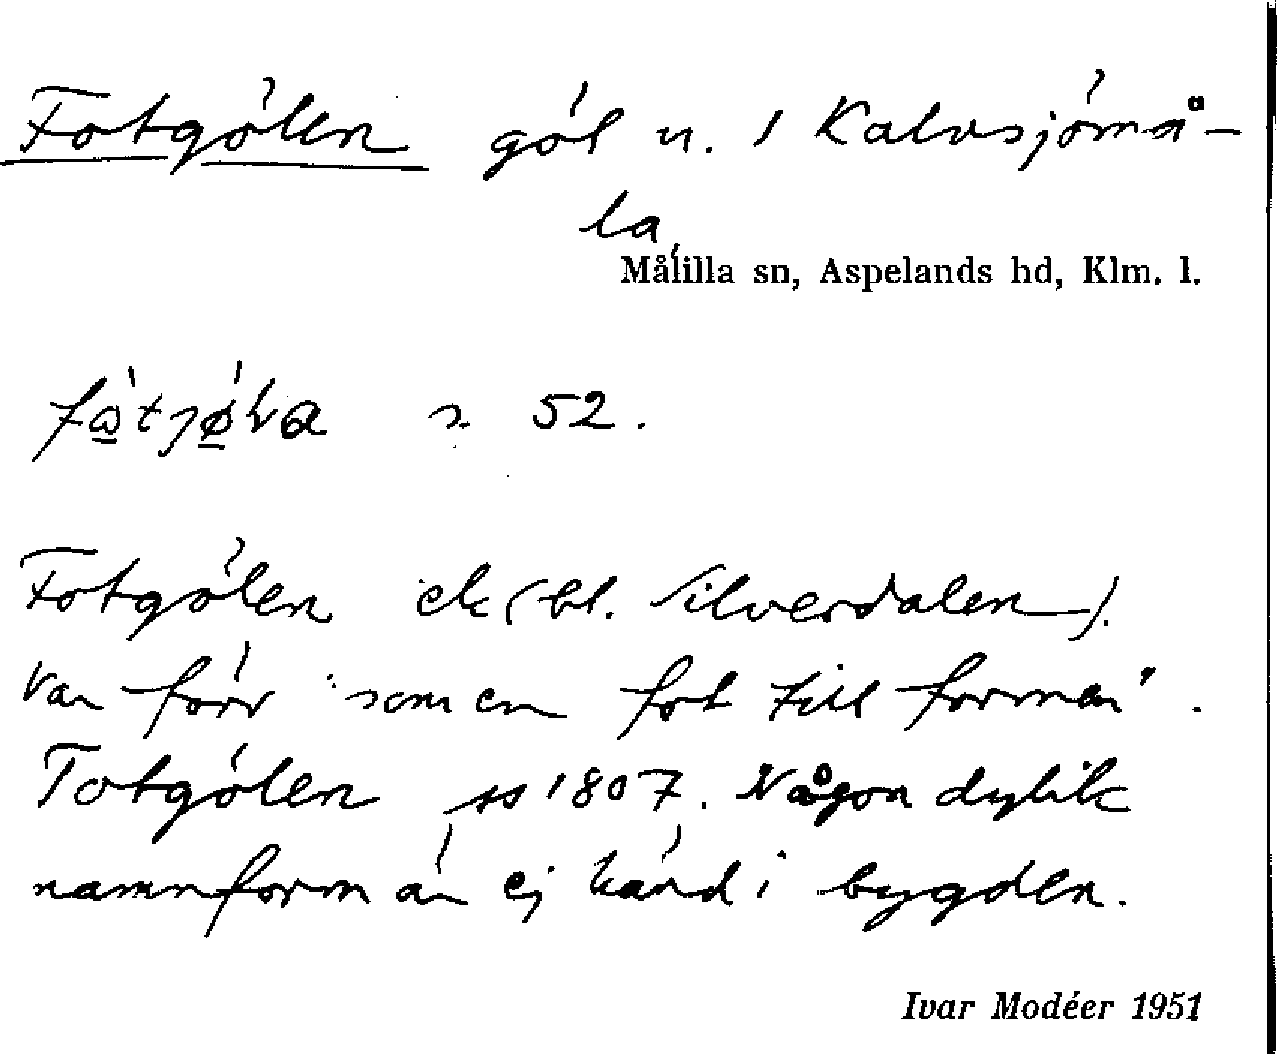 Fotgölen göl n. 1 Kalvsjömå-
la,
Målilla sn, Aspelands hd, Klm. l.
52.
Fotgölen ek (bl. Silverdalen).
Var förr "som en fot till formen".
Totgölen ss 1807. Någon dylik
namnform är ej känd i bygden.
Ivar Modéer 1951